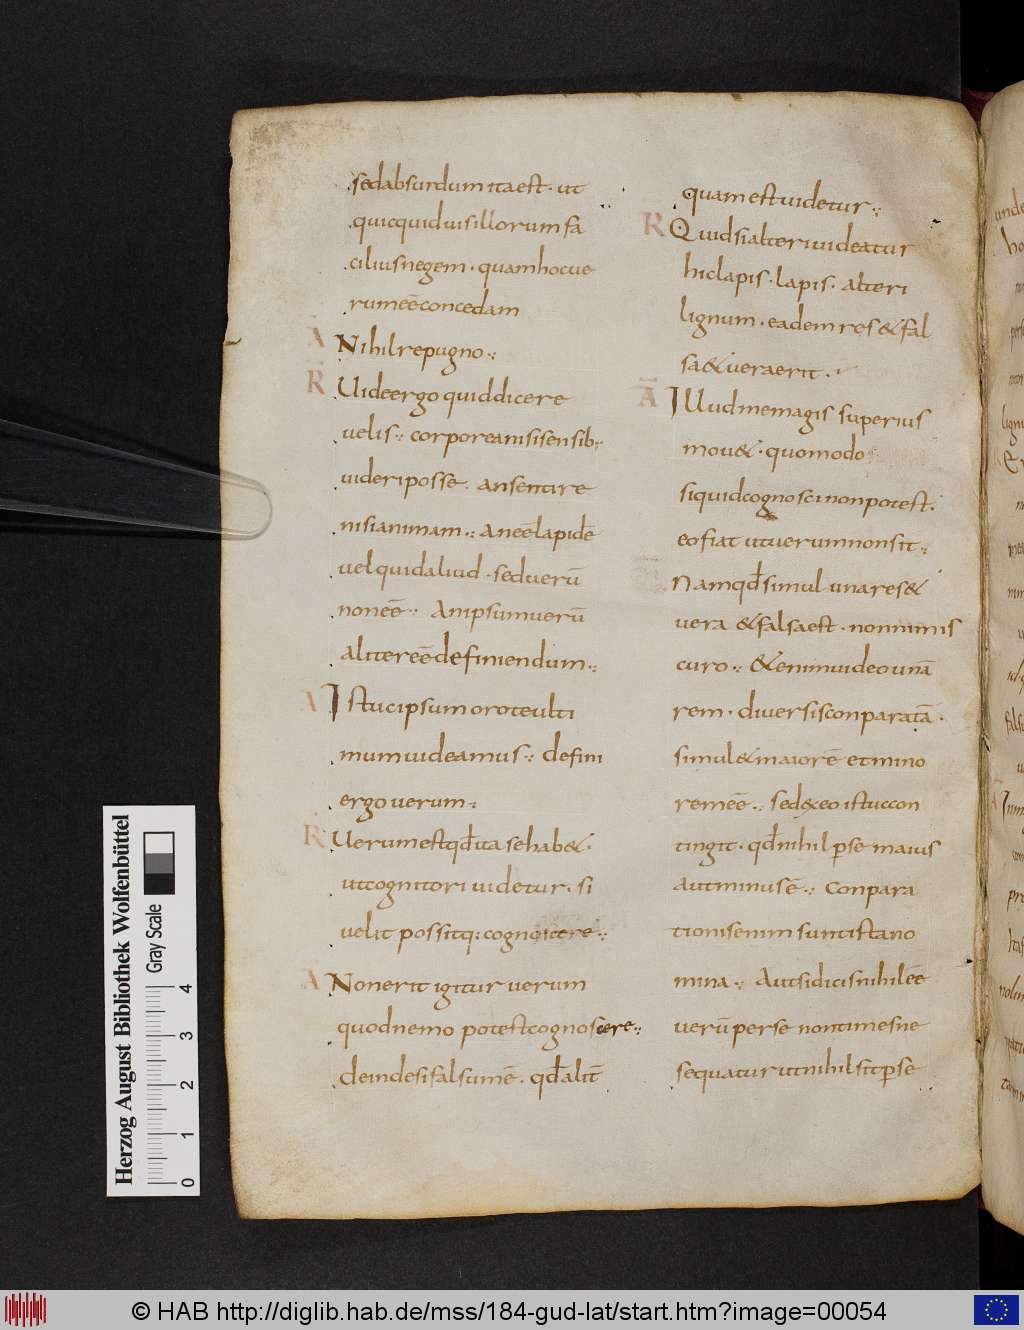 sedabsurdum itaest · ut
quicquid uisillorum fa
cilius negem · quam hoc ue
rum eē concedam
A Nihil repugno ·:
R Uide ergo quid dicere
uelis ·: corporea nisi sensib;
uideri posse · an sentire
nisi animam ·: an eē lapidē
uel quid aliud · sed uerū
non eē ·: An ipsum uerū
aliter eē definiendum ·:
A Istuc ipsum oro te ulti
mum uideamus ·: defini
ergo uerum ·:
R Uerum est qđ ita se hab& ·
ut cognitori uidetur · si
uelit possitq: cognoscere ·:
A Non erit igitur uerum
quod nemo potest cognoscere ·:
deinde si falsum ē · qđ alit̄
quam est uidetur ·:
R Quid si alteri uideatur
hic lapis · lapis · alteri
lignum · eadem res & fal
sa & uera erit ·
A Illud me magis superius
mou& · quomodo
si quid cognosci non potest ·
eo fiat ut uerum non sit ·:
Nam qđ simul una res &
uera & falsa est · non nimis
curo ·: &enim uideo unā
rem · diuersis conparatā ·
simul & maiorē et mino
rem eē ·: sed ex eo istuc con
tingit · qđ nihil p̄ se maius
aut minus ē ·: Conpara
tionis enim sunt ista no
mina ·: Aut si dicis nihil eē
uerū per se non times ne
sequatur ut nihil sit p̄ se
Herzog August Bibliothek Wolfenbüttel
Gray Scale
0 1 2 3 4
© HAB http://diglib.hab.de/mss/184-gud-lat/start.htm?image=00054